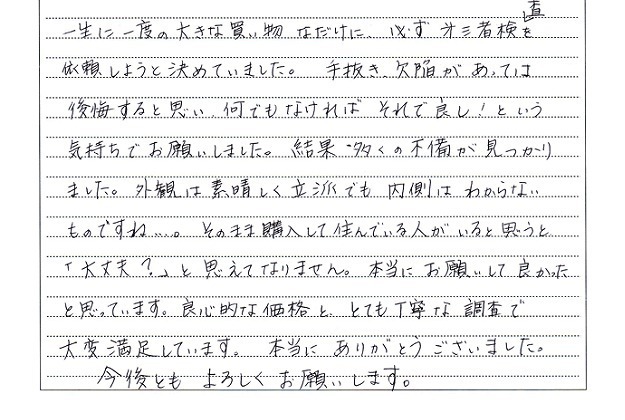 一生に一度の大きな買い物なだけに、必ず第三者検査を
依頼しようと決めていました。手抜き、欠陥があっては
後悔すると思い、何でもなければそれで良し!という
気持ちでお願いしました。結果、多くの不備が見つかり
ました。外観は素晴しく立派でも内側はわからない
ものですね…。そのまま購入して住んでいる人がいると思うと
「大丈夫?」と思えてなりません。本当にお願いして良かった
と思っています。良心的な価格と、とても丁寧な調査で
大変満足しています。本当にありがとうございました。
今後ともよろしくお願いします。